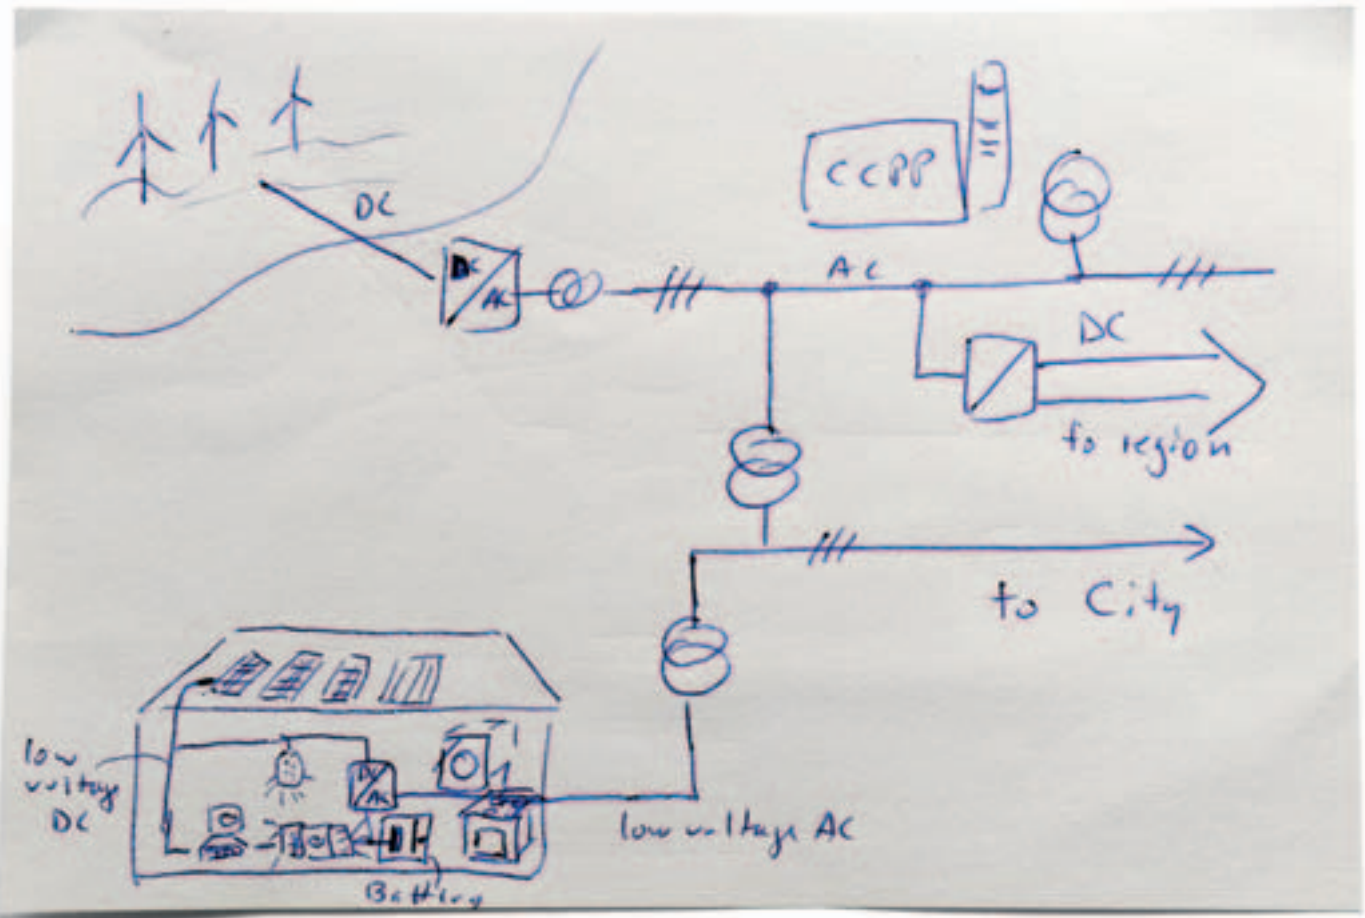 DC
DC
AC
CCPP
AC
DC
to region
to City
low
voltage
DC
DC
AC
low voltage AC
Battery